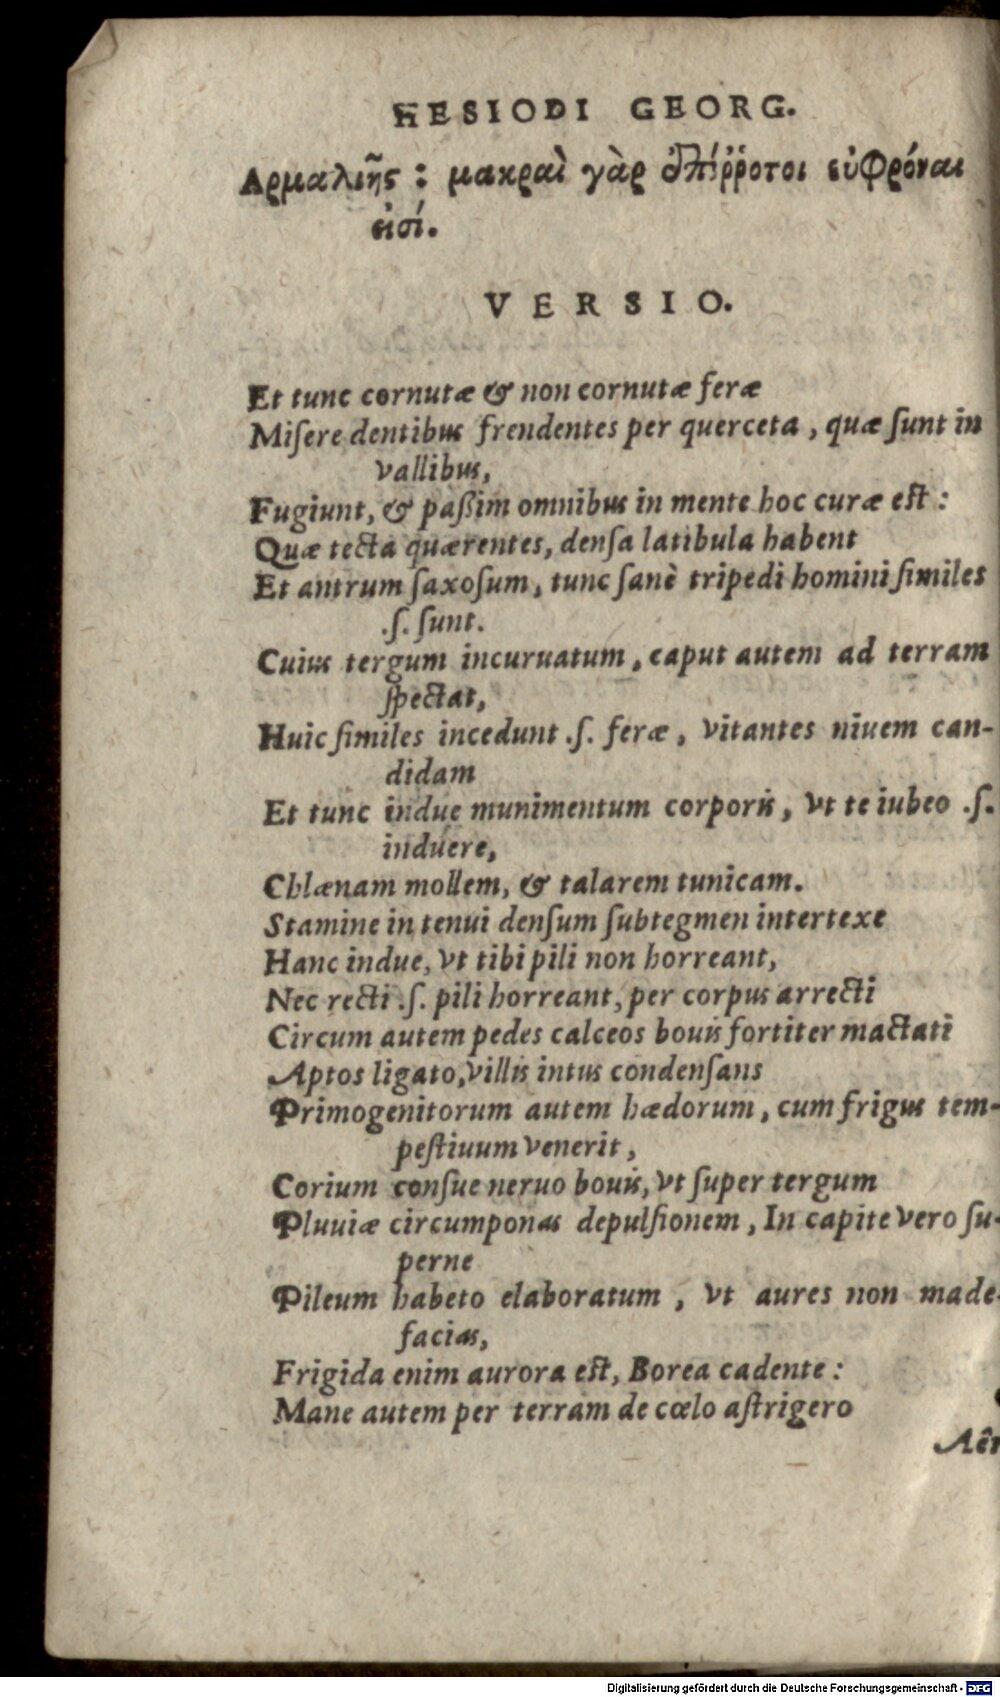 HESIODI GEORG.
Αρμαλιῆς : μακραὶ γὰρ ἐπίῤῥοτοι εὐφρόναι
εἰσί.
VERSIO.
Et tunc cornutæ & non cornutæ feræ
Miſere dentibus frendentes per querceta, quæ ſunt in
vallibus,
Fugiunt, & paßim omnibus in mente hoc curæ eſt :
Quæ tecta quærentes, denſa latibula habent
Et antrum ſaxoſum, tunc ſanè tripedi homini ſimiles
.ſ. ſunt.
Cuius tergum incuruatum, caput autem ad terram
ſpectat,
Huic ſimiles incedunt .ſ. feræ, vitantes niuem can-
didam
Et tunc indue munimentum corporis, vt te iubeo .ſ.
induere,
Chlænam mollem, & talarem tunicam.
Stamine in tenui denſum ſubtegmen intertexe
Hanc indue, vt tibi pili non horreant,
Nec recti .ſ. pili horreant, per corpus arrecti
Circum autem pedes calceos bouis fortiter mactati
Aptos ligato, villis intus condenſans
Primogenitorum autem hædorum, cum frigus tem-
peſtiuum venerit,
Corium conſue neruo bouis, vt ſuper tergum
Pluuiæ circumponas depulſionem, In capite vero ſu-
perne
Pileum habeto elaboratum, vt aures non made-
facias,
Frigida enim aurora eſt, Borea cadente :
Mane autem per terram de cœlo aſtrigero
Digitalisierung gefördert durch die Deutsche Forschungsgemeinschaft - DFG